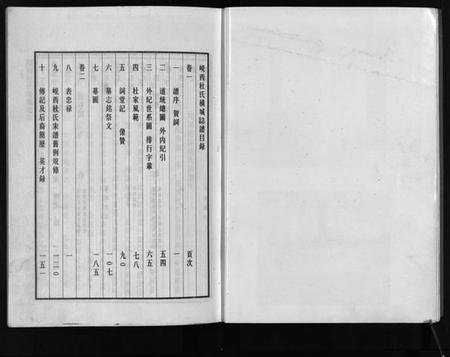 峴西杜氏橫城誌譜目錄
卷一 頁次
一 譜序 賀詞 一
二 道統總圖 外內紀引 五四
三 外紀世系圖 排行字彙 六五
四 杜家風範 七八
五 詞堂記 像贊 九〇
六 墓志銘祭文 一〇七
七 墓圖 一八五
卷二
八 表忠祿 一
九 峴西杜氏宋譜舊例規條 一二〇
十 傳記及后裔簡歷 英才錄 一五一